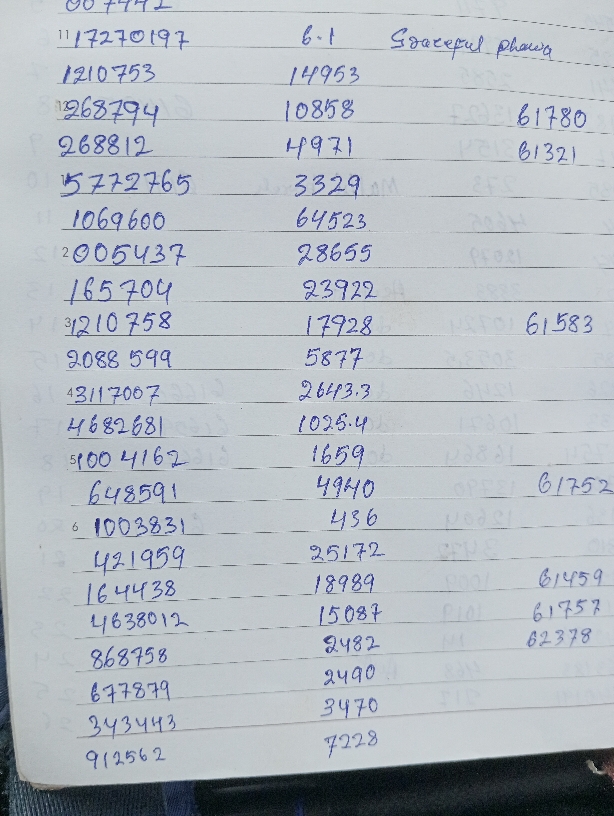 007442
11 17270197 6.1
1210753 14953
12 268794 10858 61780
268812 4971 61321
5772765 3329
1069600 64523
2 005437 28655
165704 23922
3 1210758 17928 61583
2088599 5877
4 3117007 2643.3
4682681 1025.4
5 1004162 1659
648591 4940 61752
6 1003831 436
421959 25172
164438 18989 61459
4638012 15087 61757
868758 2482 62378
677879 2490
343443 3470
912562 7228